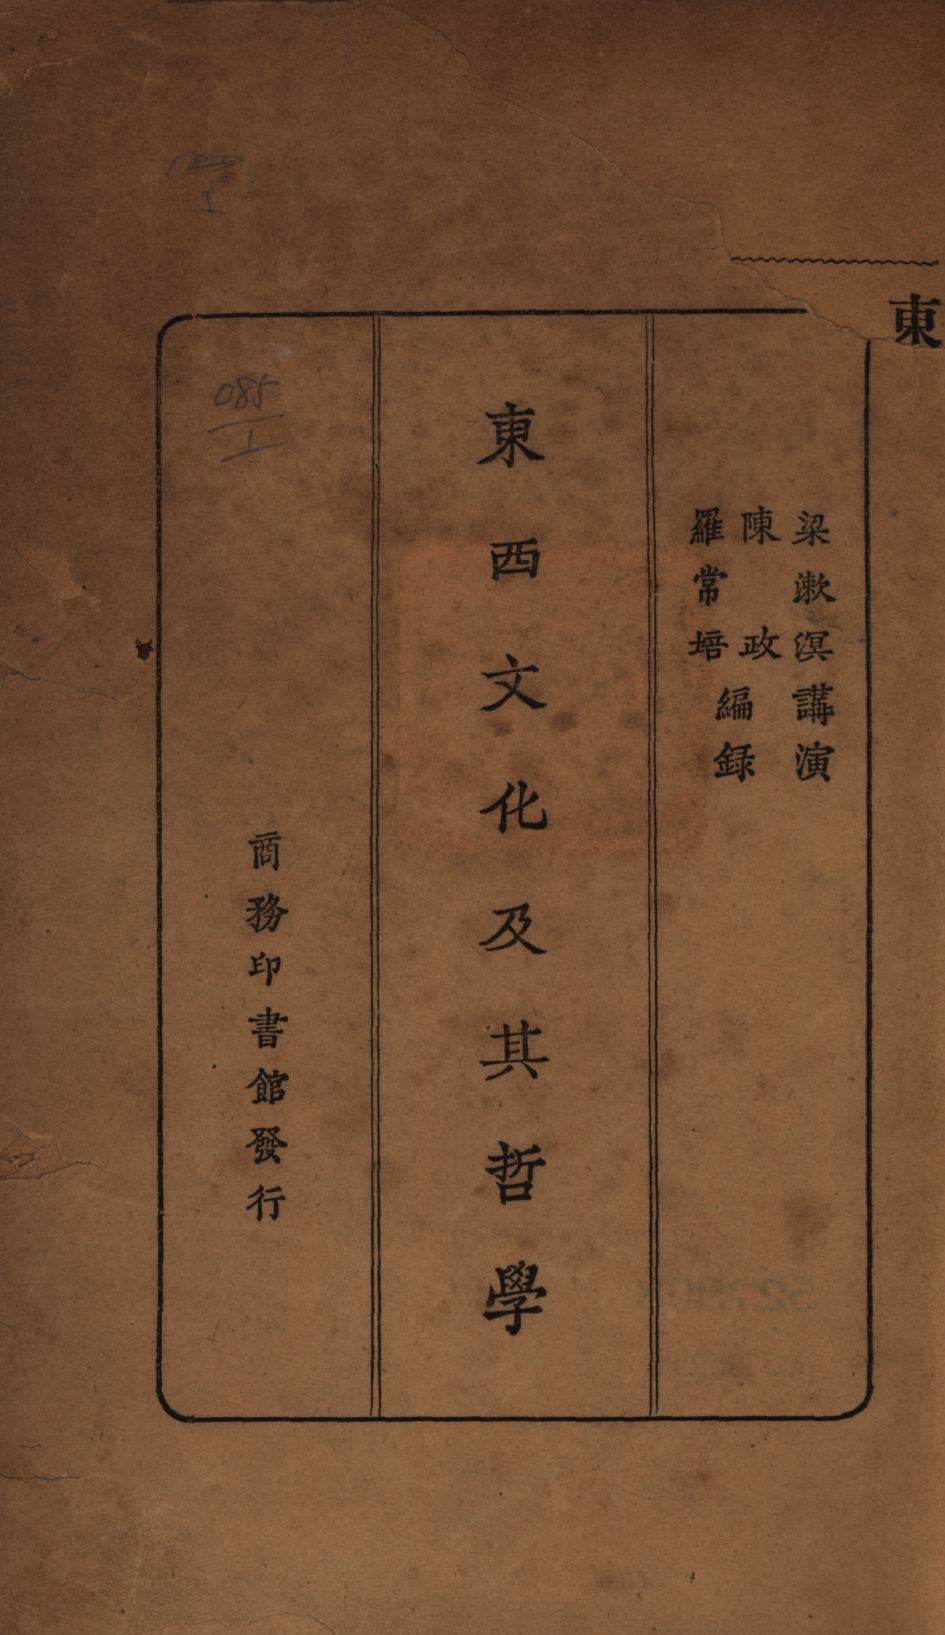 東
梁漱溟講演
陳政
羅常培
編録
東西文化及其哲學
商務印書館發行
085
I
I